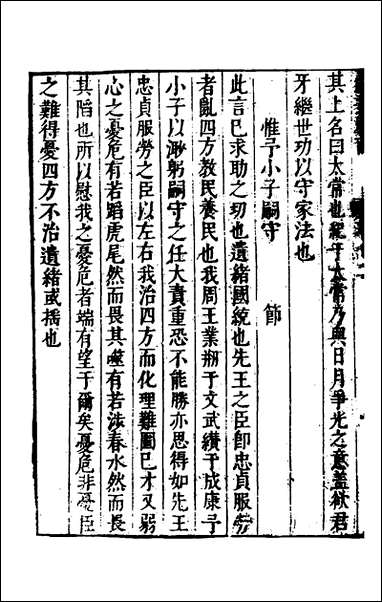 其上名曰太常也紀于太常乃與日月爭光之意蓋欲君
牙繼世功以守家法也
惟予小子嗣守　節
此言已求助之切也遺緒國統也先王之臣卽忠貞服勞
者亂四方敎民養民也我周王業刱于文武纘于成康予
小子以渺躬嗣守之任大責重恐不能勝亦思得如先王
忠貞服勞之臣以左右我治四方而化理難圖已才又弱
心之憂危有若蹈虎尾然而畏其噬有若涉春水然而畏
其陷也所以慰我之憂危者端有望于爾矣憂危非憂臣
之難得憂四方不治遺緒或撝也